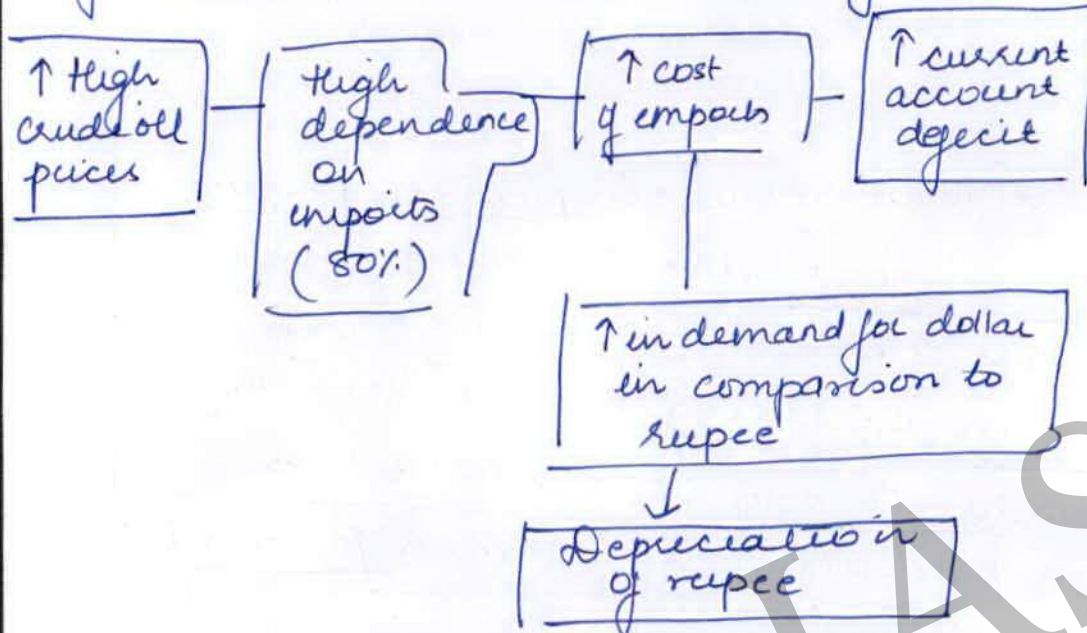 ↑ High
crude oil
prices
High
dependence
on
imports
(80%)
↑ cost
of imports
↑ current
account
deficit
↑ in demand for dollar
in comparison to
rupee
Depreciation
of rupee
IAS